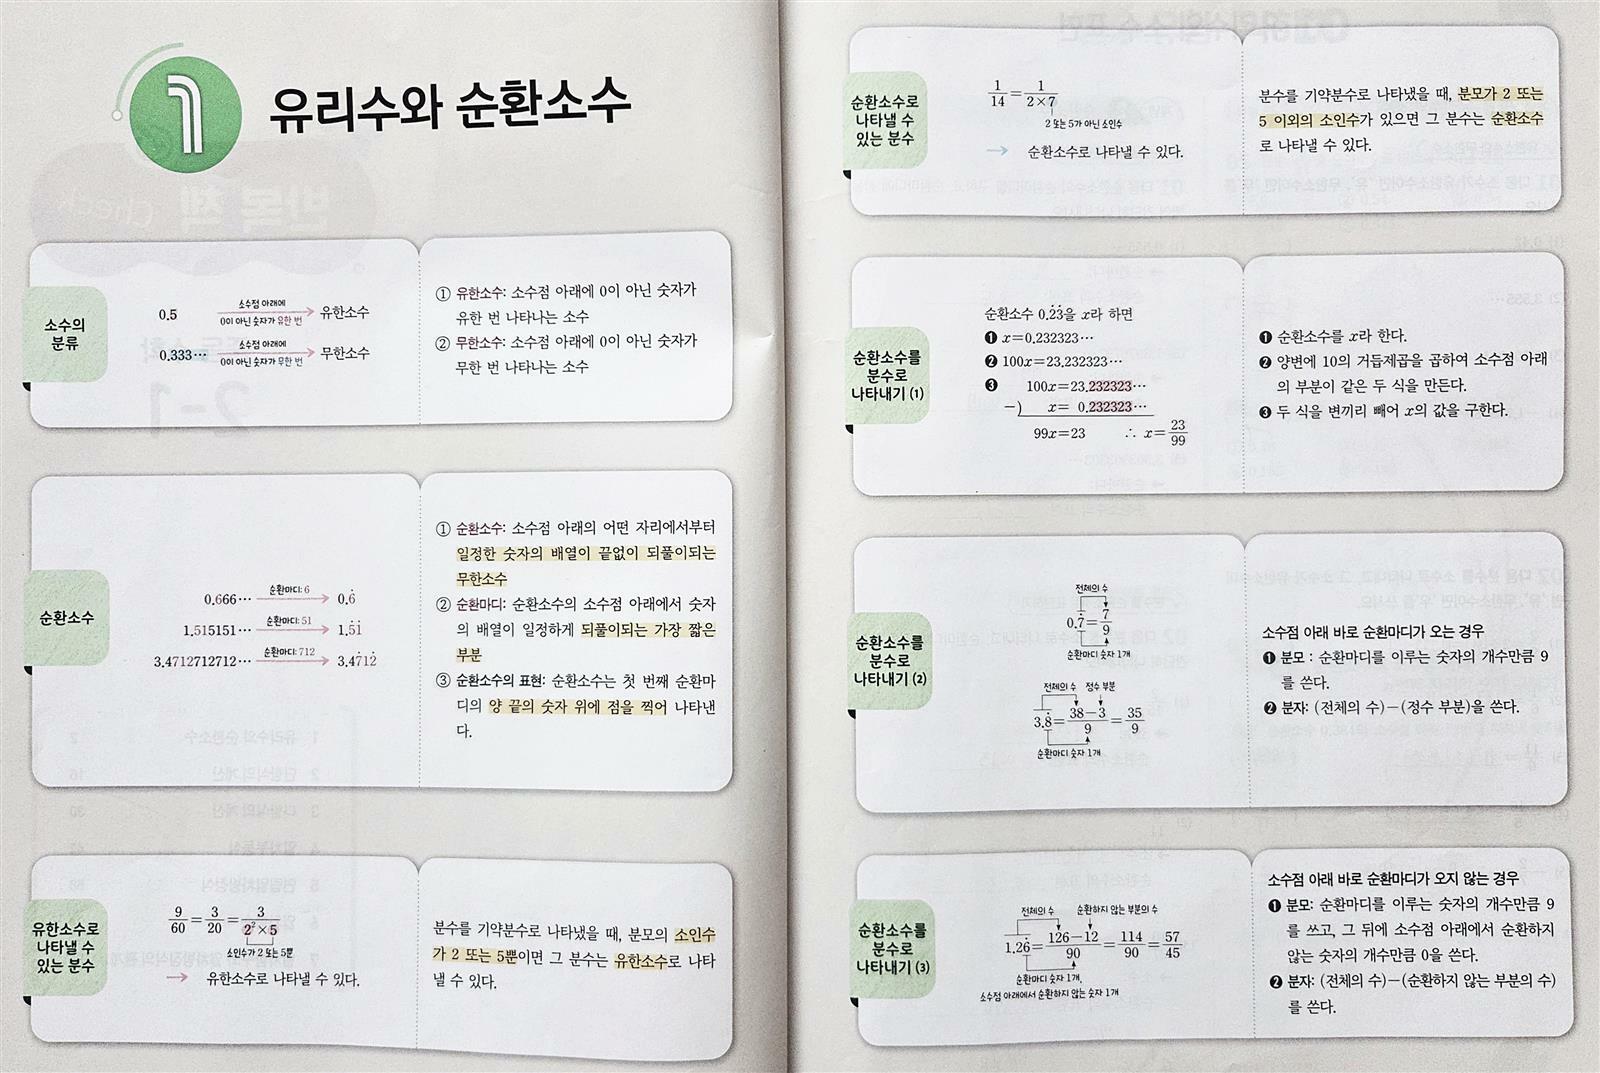 1 유리수와 순환소수
소수의
분류
0.5 소수점 아래에 0이 아닌 숫자가 유한 번 → 유한소수
0.333⋯ 소수점 아래에 0이 아닌 숫자가 무한 번 → 무한소수
① 유한소수: 소수점 아래에 0이 아닌 숫자가
유한 번 나타나는 소수
② 무한소수: 소수점 아래에 0이 아닌 숫자가
무한 번 나타나는 소수
순환소수
0.666⋯ 순환마디: 6 → 0.6̇
1.515151⋯ 순환마디: 51 → 1.5̇1̇
3.4712712712⋯ 순환마디: 712 → 3.47̇12̇
① 순환소수: 소수점 아래의 어떤 자리에서부터
일정한 숫자의 배열이 끝없이 되풀이되는
무한소수
② 순환마디: 순환소수의 소수점 아래에서 숫자
의 배열이 일정하게 되풀이되는 가장 짧은
부분
③ 순환소수의 표현: 순환소수는 첫 번째 순환마
디의 양 끝의 숫자 위에 점을 찍어 나타낸
다.
유한소수로
나타낼 수
있는 분수
9/60=3/20=3/(2²×5)
소인수가 2 또는 5뿐
→ 유한소수로 나타낼 수 있다.
분수를 기약분수로 나타냈을 때, 분모의 소인수
가 2 또는 5뿐이면 그 분수는 유한소수로 나타
낼 수 있다.
순환소수로
나타낼 수
있는 분수
1/14=1/(2×7)
2 또는 5가 아닌 소인수
→ 순환소수로 나타낼 수 있다.
분수를 기약분수로 나타냈을 때, 분모가 2 또는
5 이외의 소인수가 있으면 그 분수는 순환소수
로 나타낼 수 있다.
순환소수를
분수로
나타내기 (1)
순환소수 0.2̇3̇을 x라 하면
❶ x=0.232323⋯
❷ 100x=23.232323⋯
❸ 100x=23.232323⋯
−) x= 0.232323⋯
99x=23 ∴ x=23/99
❶ 순환소수를 x라 한다.
❷ 양변에 10의 거듭제곱을 곱하여 소수점 아래
의 부분이 같은 두 식을 만든다.
❸ 두 식을 변끼리 빼어 x의 값을 구한다.
순환소수를
분수로
나타내기 (2)
전체의 수
0.7̇=7/9
순환마디 숫자 1개
전체의 수 정수 부분
3.8̇=(38−3)/9=35/9
순환마디 숫자 1개
소수점 아래 바로 순환마디가 오는 경우
❶ 분모 : 순환마디를 이루는 숫자의 개수만큼 9
를 쓴다.
❷ 분자: (전체의 수)−(정수 부분)을 쓴다.
순환소수를
분수로
나타내기 (3)
전체의 수 순환하지 않는 부분의 수
1.26̇=(126−12)/90=114/90=57/45
순환마디 숫자 1개,
소수점 아래에서 순환하지 않는 숫자 1개
소수점 아래 바로 순환마디가 오지 않는 경우
❶ 분모: 순환마디를 이루는 숫자의 개수만큼 9
를 쓰고, 그 뒤에 소수점 아래에서 순환하지
않는 숫자의 개수만큼 0을 쓴다.
❷ 분자: (전체의 수)−(순환하지 않는 부분의 수)
를 쓴다.